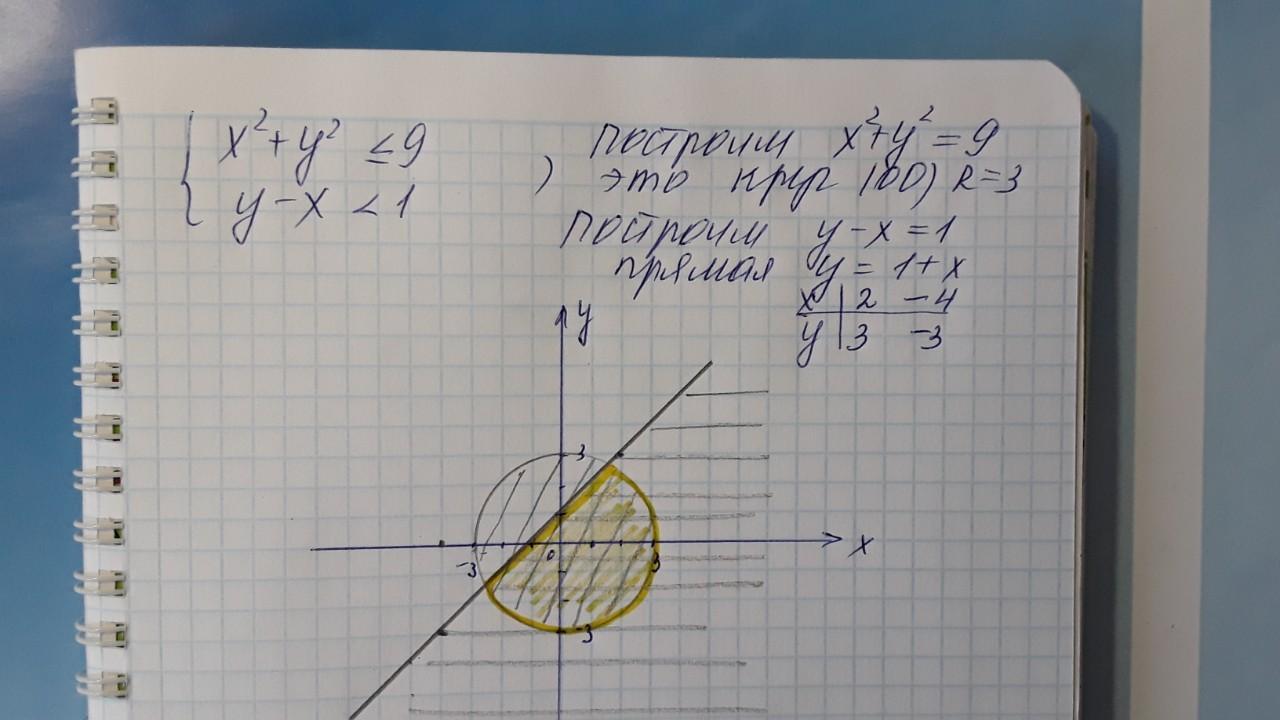 { x² + y² ≤ 9
y - x < 1
) Построим x² + y² = 9
это круг (00) R = 3
Построим y - x = 1
прямая y = 1 + x
x | 2 -4
y | 3 -3
y
3
-3 0 3 x
-3